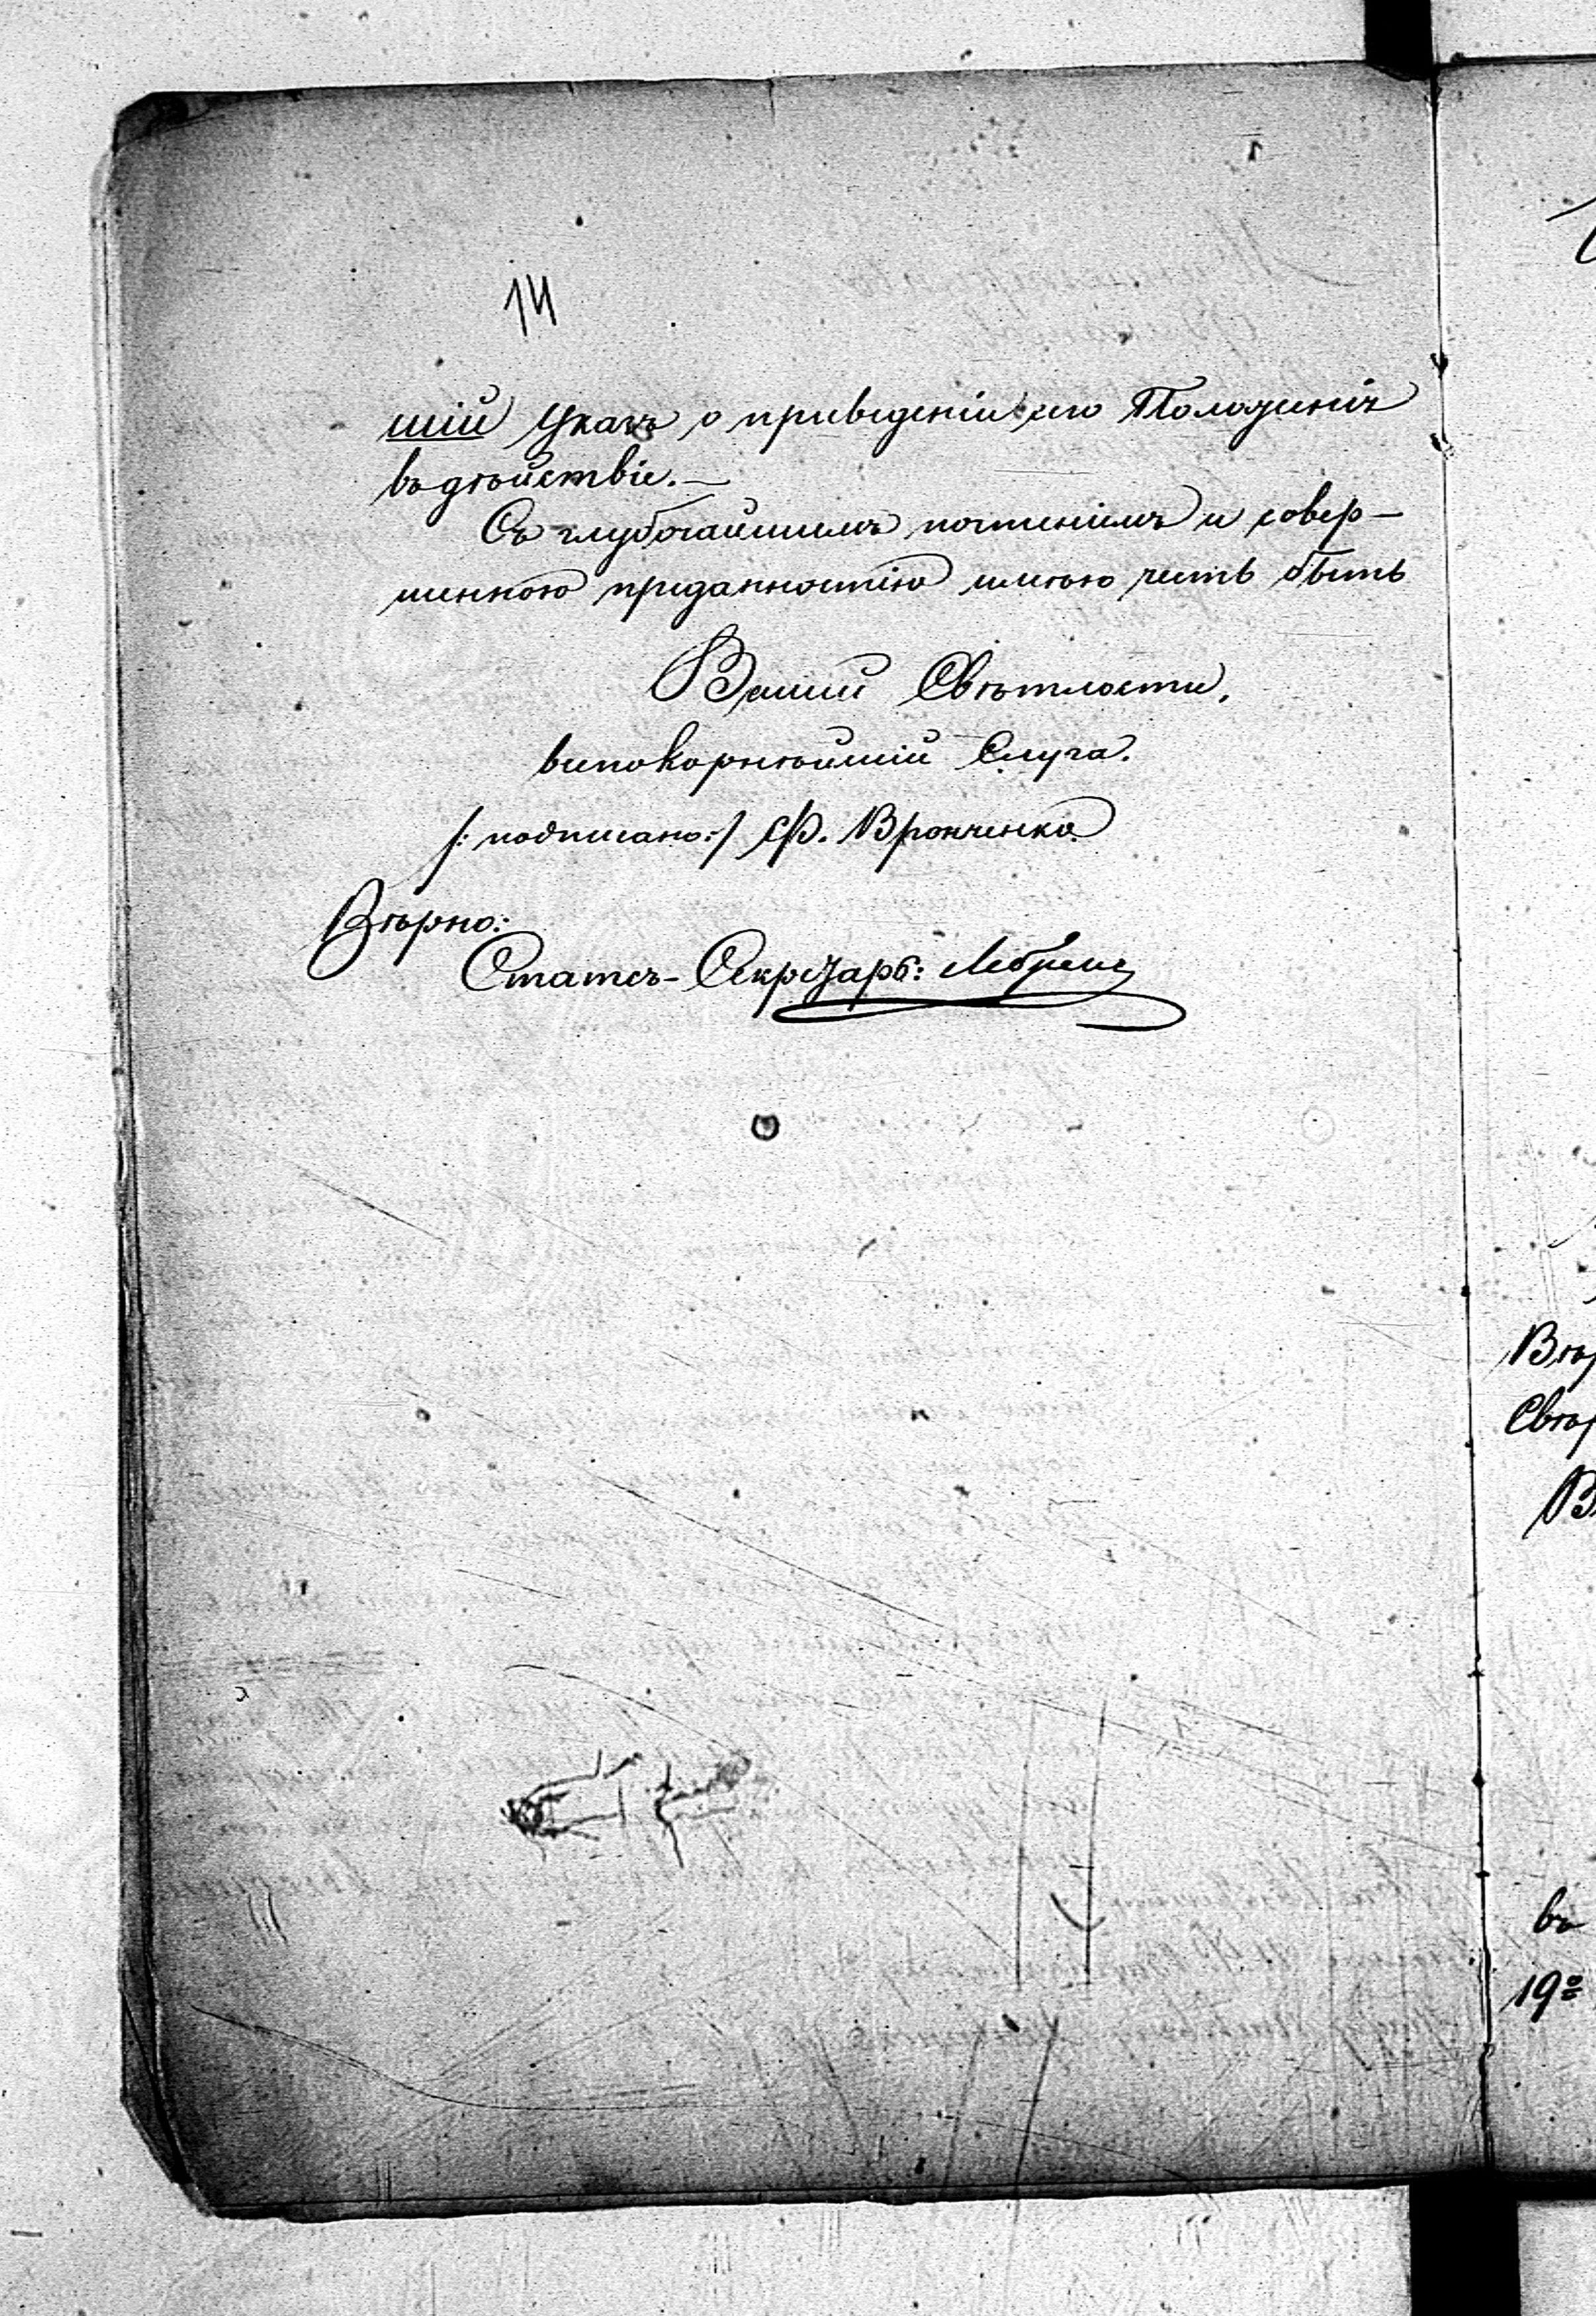 14
шій Указъ о приведеніи сего Положенія
въ дѣйствіе.—
Съ глубочайшимъ почтеніемъ и совер-
шенною преданностію имѣю честь быть
Вашей Свѣтлости,
всепокорнѣйшій Слуга.
/: подписано:/ Ф. Вронченко
Вѣрно:
Статсъ-Секретарь:
въ
19º